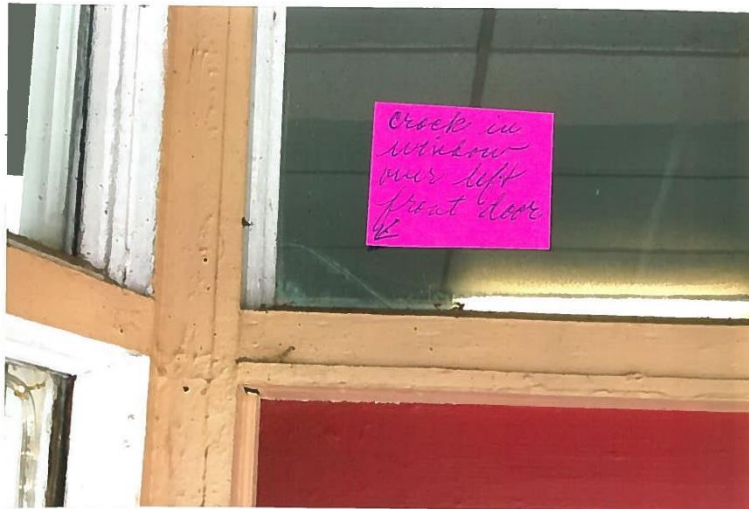 crack in
window
over left
front door